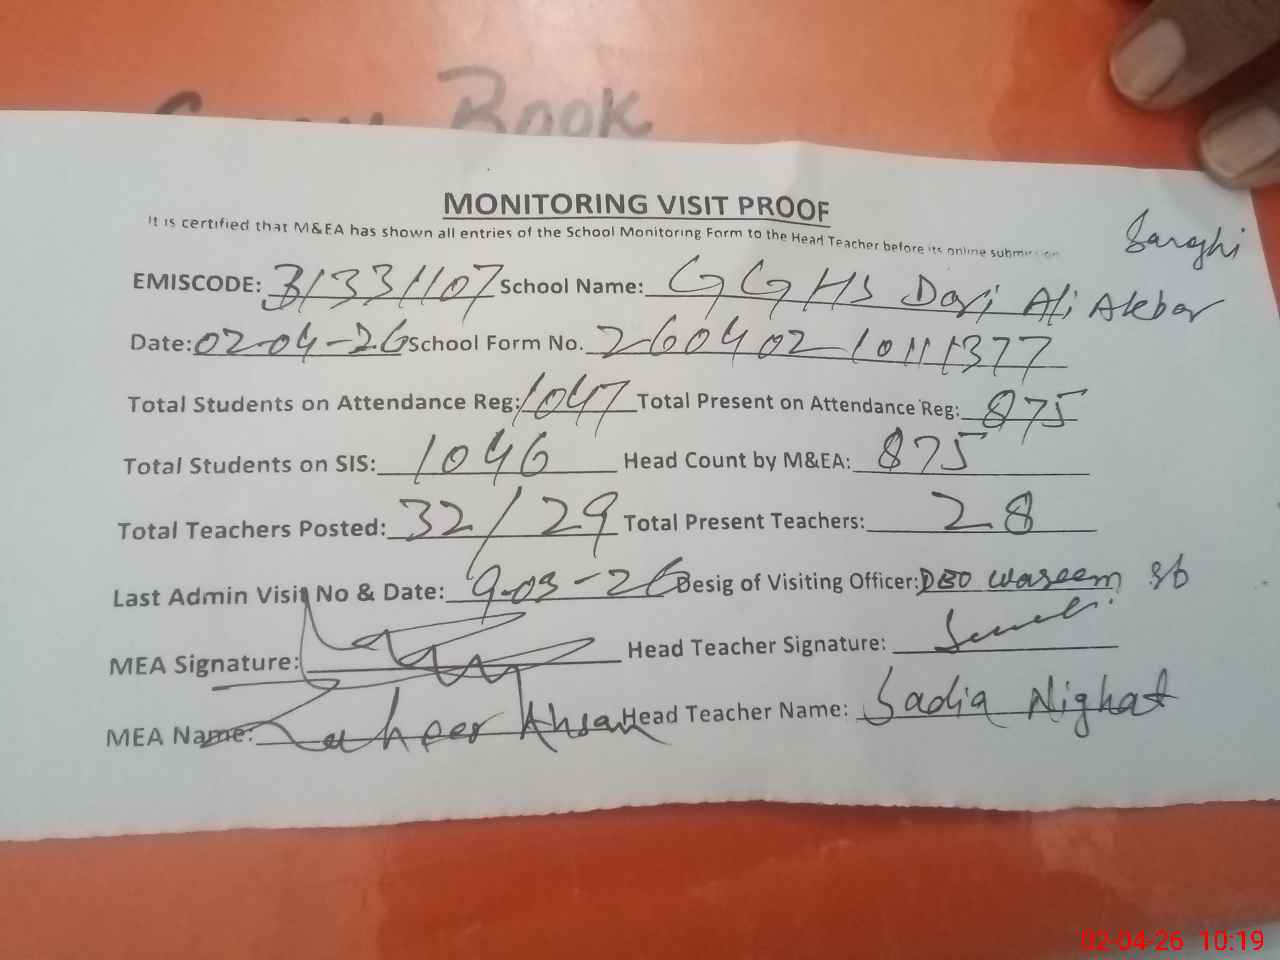 Book
MONITORING VISIT PROOF
It is certified that M&EA has shown all entries of the School Monitoring Form to the Head Teacher before its online submission
Saraghi
EMISCODE: 31331107 School Name: GGHS Dari Ali Akbar
Date: 02-04-26 School Form No. 260402 10111377
Total Students on Attendance Reg: 1047 Total Present on Attendance Reg: 875
Total Students on SIS: 1046 Head Count by M&EA: 875
Total Teachers Posted: 32/29 Total Present Teachers: 28
Last Admin Visit No & Date: 9-03-26 Desig of Visiting Officer: DEO Waseem sb
MEA Signature: Head Teacher Signature:
MEA Name: Zaheer Ahsan Head Teacher Name: Sadia Nighat
02-04-26 10:19